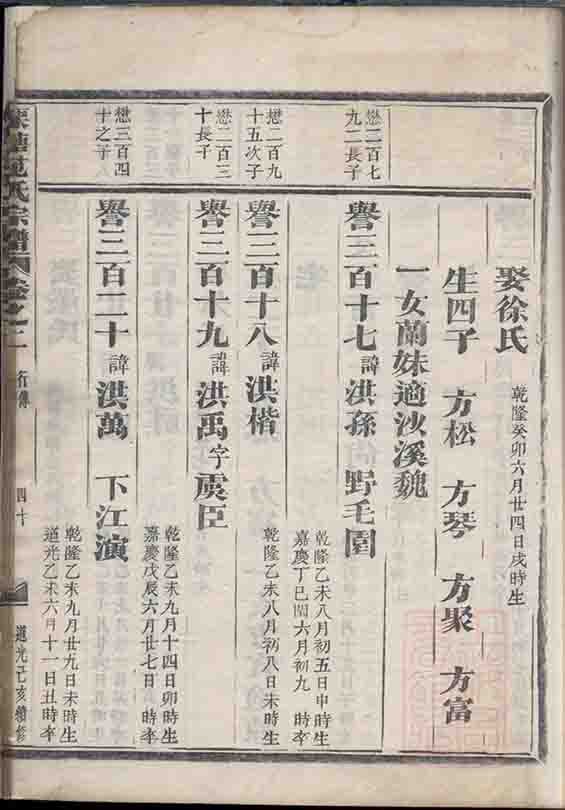 娶徐氏 乾隆癸卯六月廿四日戌時生
生四子 方松 方琴 方聚 方富
一女蘭妹適沙溪魏
懋二百七
九二長子
譽三百十七 諱洪孫 野毛園
乾隆乙未八月初五日申時生
嘉慶丁巳閏六月初九 時卒
懋二百九
十五次子
譽三百十八 諱洪楷
乾隆乙未八月初八日未時生
懋二百三
十長子
譽三百十九 諱洪禹 字虞臣
乾隆乙未九月十四日卯時生
嘉慶戊辰六月廿七日 時卒
懋三百四
十之子
譽三百二十 諱洪萬 下江演
乾隆乙未九月廿九日未時生
道光乙未六月十一日丑時卒
氏宗譜 卷之二 行傳 四十 道光己亥續修